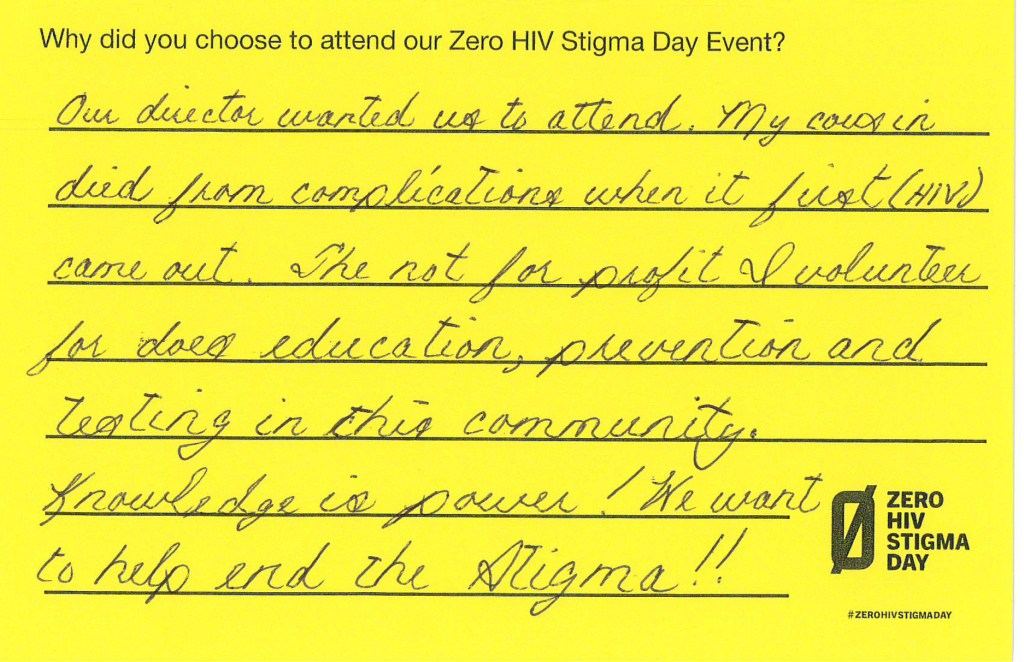 Why did you choose to attend our Zero HIV Stigma Day Event?
Our director wanted us to attend. My cousin
died from complications when it first (HIV)
came out. The not for profit I volunteer
for does education, prevention and
testing in this community.
Knowledge is power! We want
to help end the Stigma!!
ZERO
HIV
STIGMA
DAY
#ZEROHIVSTIGMADAY